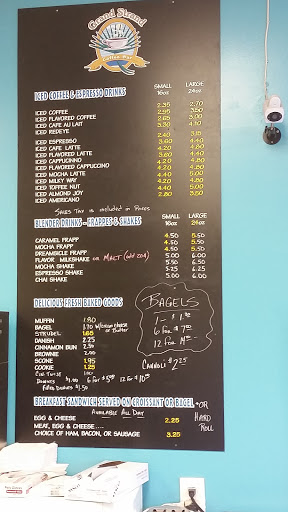 Grand Strand
Coffee Bar
ICED COFFEE & ESPRESSO DRINKS SMALL 16oz LARGE 24oz
ICED COFFEE 2.35 2.70
ICED FLAVORED COFFEE 2.95 3.50
ICED CAFE AU LAIT 2.65 3.00
ICED REDEYE 3.30 4.10
ICED ESPRESSO 2.40 3.15
ICED CAFE LATTE 3.60 4.40
ICED FLAVORED LATTE 4.20 4.80
ICED CAPPUCINNO 3.60 4.40
ICED FLAVORED CAPPUCINO 4.20 4.80
ICED MOCHA LATTE 4.20 4.80
ICED MILKY WAY 4.40 5.00
ICED TOFFEE NUT 4.20 4.80
ICED ALMOND JOY 4.40 5.00
ICED AMERICANO 2.80 3.50
SALES TAX is included in PRICES
BLENDER DRINKS - FRAPPES & SHAKES SMALL 16oz LARGE 24oz
CARAMEL FRAPP 4.50 5.50
MOCHA FRAPP 4.50 5.50
DREAMSICLE FRAPP 4.50 5.50
FLAVOR MILKSHAKE OR MALT (add 20¢) 5.00 5.50
MOCHA SHAKE 5.50 6.50
ESPRESSO SHAKE 5.25 6.25
CHAI SHAKE 5.00 6.00
DELICIOUS FRESH BAKED GOODS
MUFFIN 1.80
BAGEL 1.70 w/Cream cheese or Butter
STRUDEL 1.65
DANISH 2.25
CINNAMON BUN 2.50
BROWNIE 2.00
SCONE 1.95
COOKIE 1.25
1.00
Donuts $1.00 6 For $5.00 12 For $10.00
Filled Donuts $1.50
BAGELS
6 For $7.00
CANNOLI $2.25
BREAKFAST SANDWICH SERVED ON CROISSANT OR BAGEL *OR HARD ROLL
AVAILABLE ALL DAY
EGG & CHEESE 2.25
MEAT, EGG & CHEESE.... 3.25
CHOICE OF HAM, BACON, OR SAUSAGE